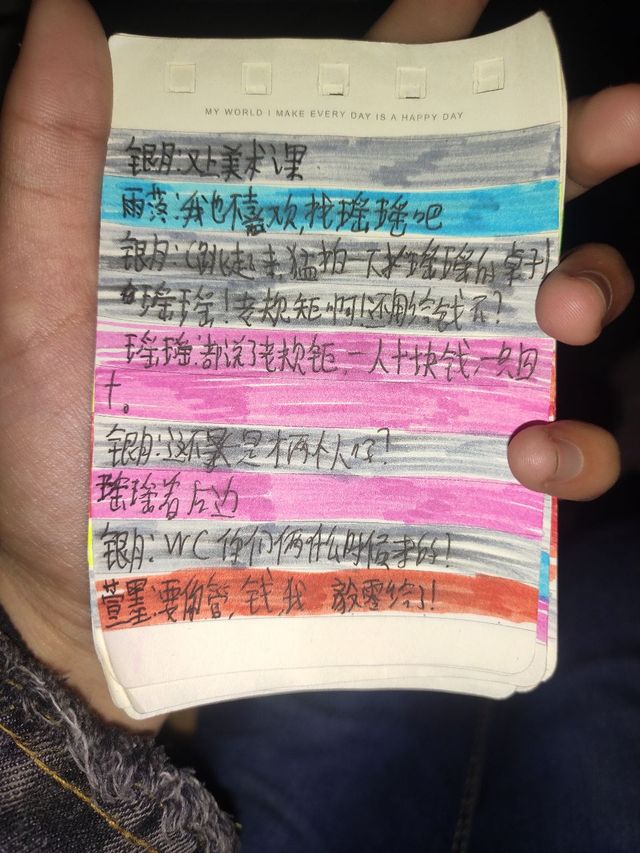 MY WORLD I MAKE EVERY DAY IS A HAPPY DAY
银月:又上美术课
雨落:我也不喜欢,找瑶瑶吧
银月:(跳起来猛拍一下瑶瑶的桌子)
“瑶瑶!老规矩啊!还用给钱不?
瑶瑶:都说了老规钜,一人十块钱,
十。
银月:还是老样子?
瑶瑶看左边
银月:WC 你们俩什么时候来的!
萱墨:要你管,钱,我 放零给了!